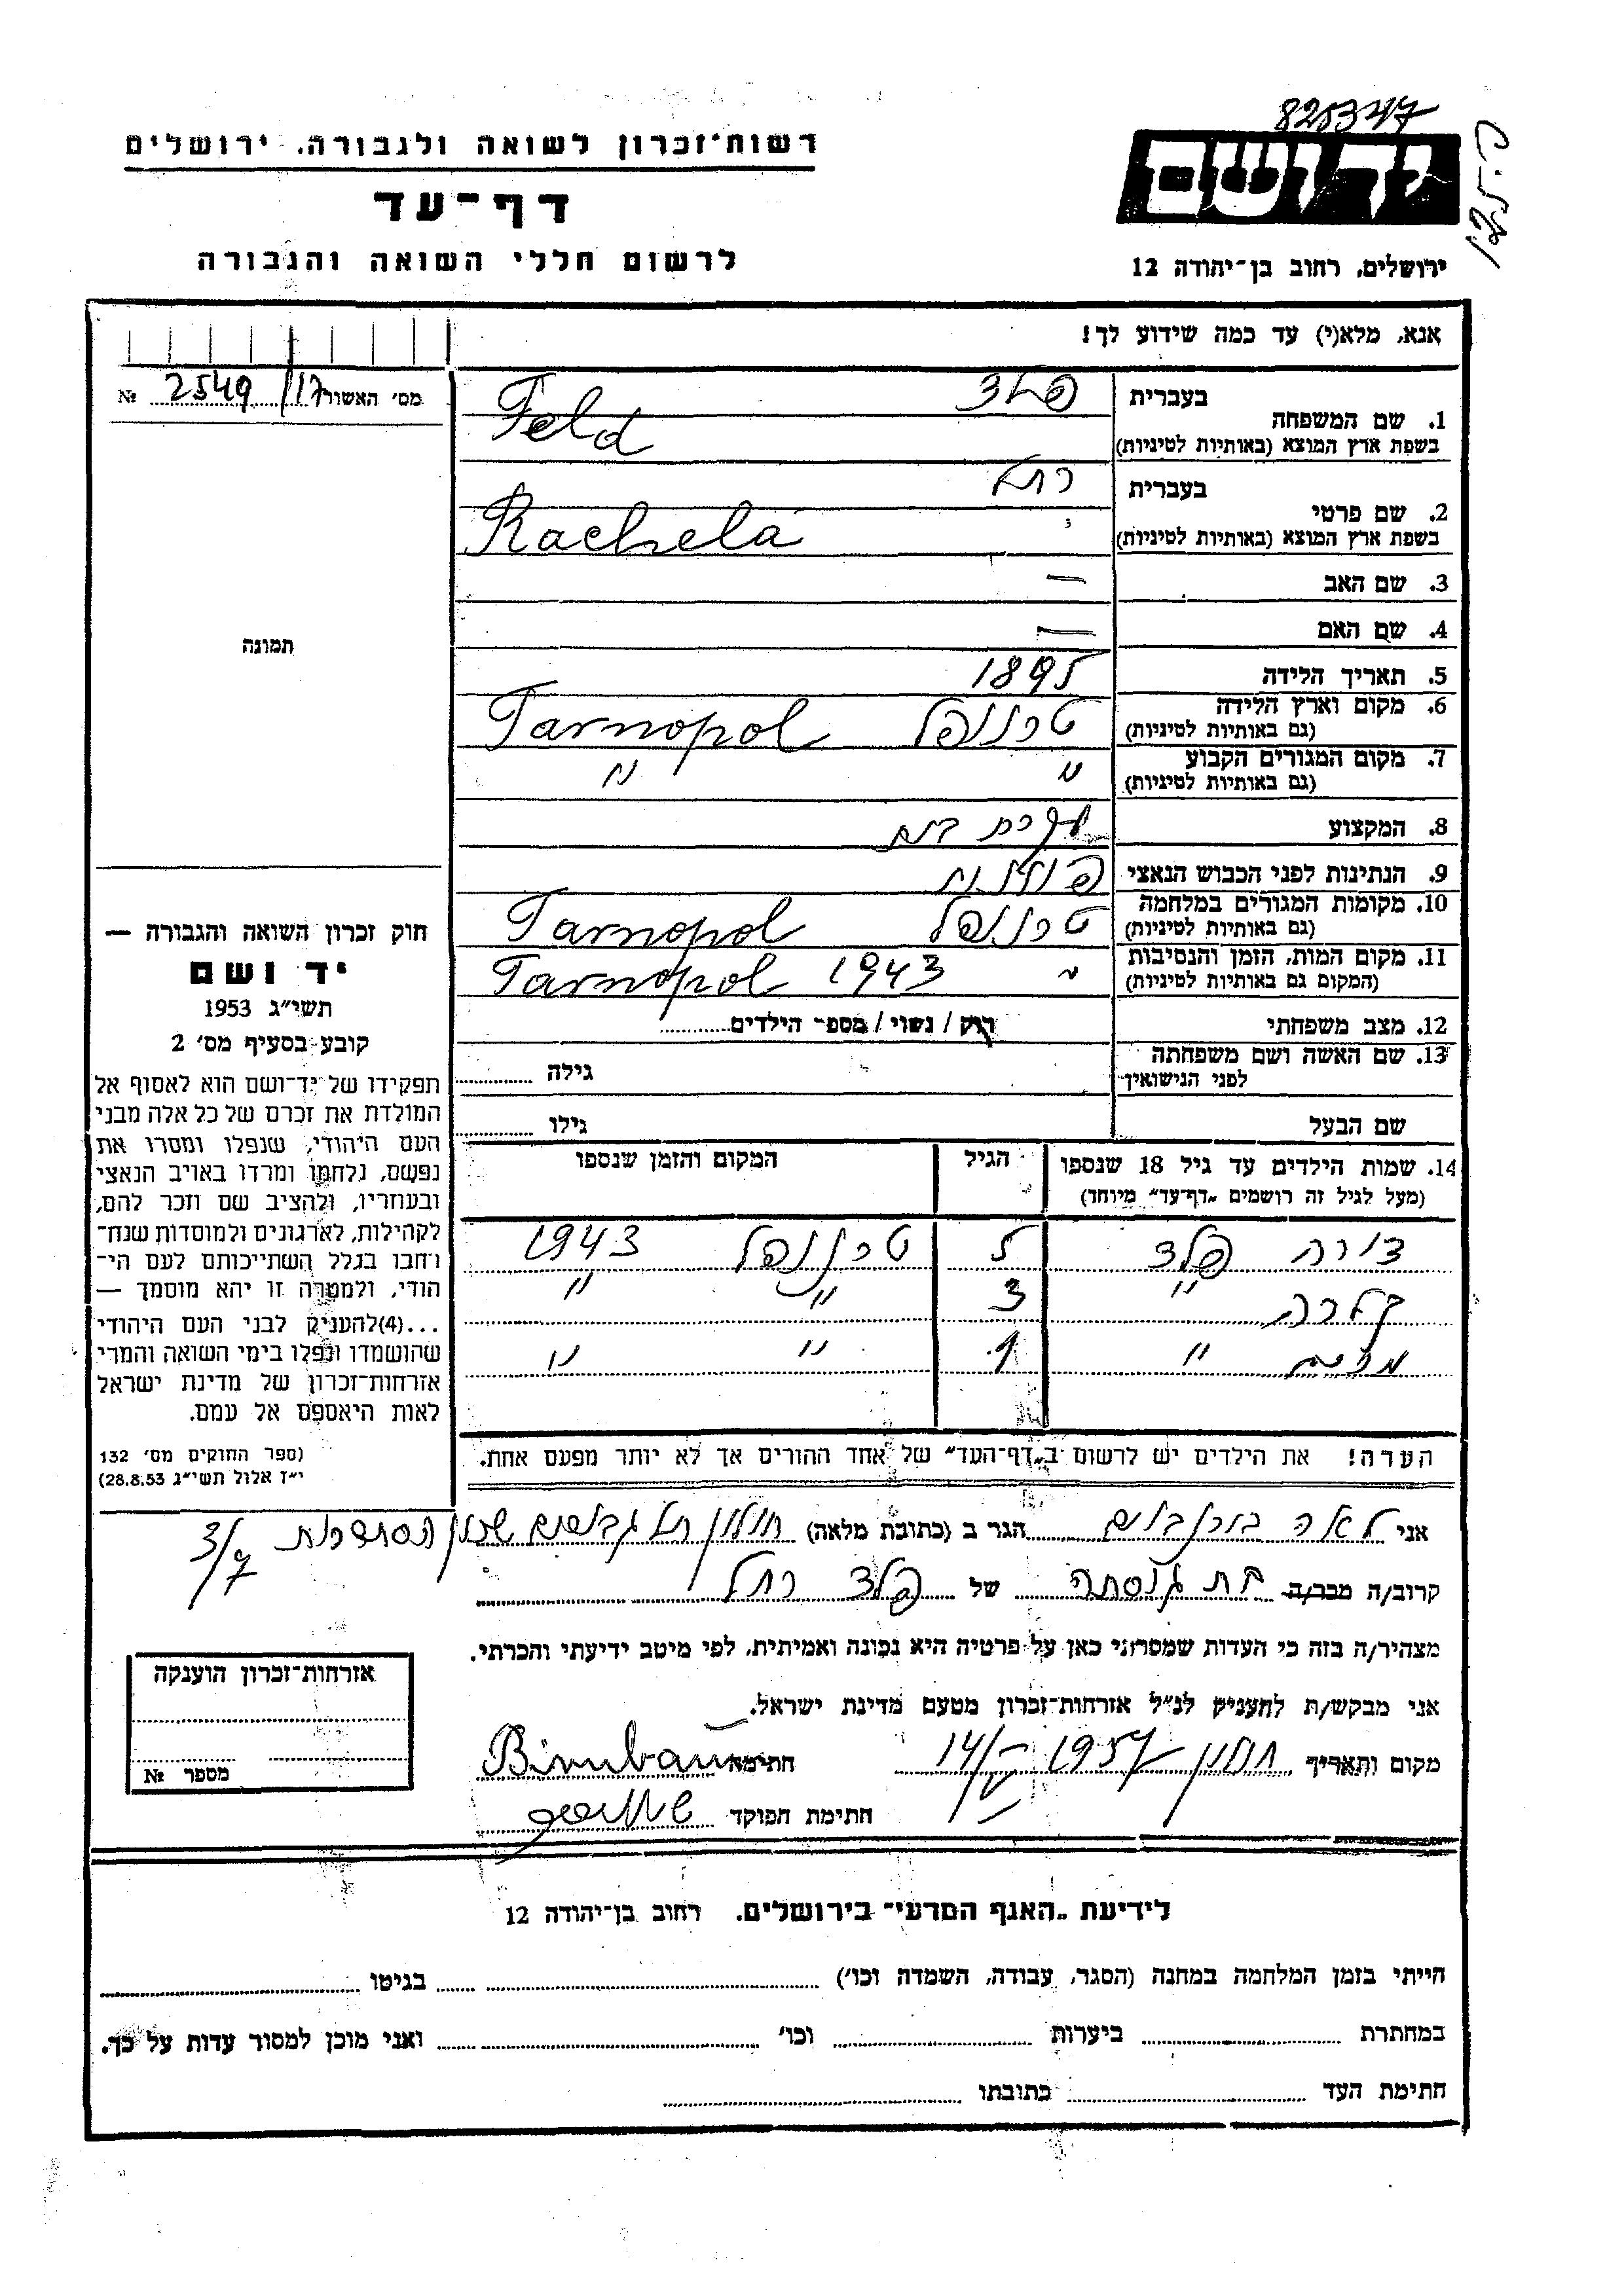 825347
125.ס
רשות־זכרון לשואה ולגבורה, ירושלים
דף־עד
לרשום חללי השואה והגבורה
יד ושם
ירושלים, רחוב בן־יהודה 12
אנא, מלא(י) עד כמה שידוע לך!
מס׳ האשור 17/ 2549 №
תמונה
בעברית פלד
1. שם המשפחה
בשפת ארץ המוצא (באותיות לטיניות) Feld
בעברית רחל
2. שם פרטי
בשפת ארץ המוצא (באותיות לטיניות) Rachela
3. שם האב —
4. שם האם —
5. תאריך הלידה 1895
6. מקום וארץ הלידה טרנופל Tarnopol
(גם באותיות לטיניות)
7. מקום המגורים הקבוע " "
(גם באותיות לטיניות)
8. המקצוע עקרת בית
9. הנתינות לפני הכבוש הנאצי פולנית
10. מקומות המגורים במלחמה טרנופל Tarnopol
(גם באותיות לטיניות)
11. מקום המות, הזמן והנסיבות " 1943 Tarnopol
(המקום גם באותיות לטיניות)
12. מצב משפחתי רוק / נשוי / מספר הילדים
13. שם האשה ושם משפחתה גילה
לפני הנישואין
שם הבעל גילו
14. שמות הילדים עד גיל 18 שנספו הגיל המקום והזמן שנספו
(מעל לגיל זה רושמים „דף־עד״ מיוחד)
דורה פלד 5 טרנופל 1943
קלרה " 3 " "
" 1 " "
הערה! את הילדים יש לרשום ב„דף־העד״ של אחד ההורים אך לא יותר מפעם אחת.
חוק זכרון השואה והגבורה —
יד ושם
תשי״ג 1953
קובע בסעיף מס׳ 2
תפקידו של יד־ושם הוא לאסוף אל
המולדת את זכרם של כל אלה מבני
העם היהודי, שנפלו ומסרו את
נפשם, נלחמו ומרדו באויב הנאצי
ובעוזריו, ולהציב שם וזכר להם,
לקהילות, לארגונים ולמוסדות שנח־
רחבו בגלל השתייכותם לעם הי־
הודי, ולמטרה זו יהא מוסמך —
...(4)להעניק לבני העם היהודי
שהושמדו ונפלו בימי השואה והמרי
אזרחות־זכרון של מדינת ישראל
לאות היאספם אל עמם.
(ספר החוקים מס׳ 132
י״ז אלול תשי״ג 28.8.53)
אני לאה בירנבוים הגר ב (כתובת מלאה) חולון תל גבורים שכון הסתדרות 3/7
קרוב/ה מכר/ה בת גיסתה של פלד רחל
מצהיר/ה בזה כי העדות שמסרתי כאן על פרטיה היא נכונה ואמיתית, לפי מיטב ידיעתי והכרתי.
אני מבקש/ת להעניק לנ״ל אזרחות־זכרון מטעם מדינת ישראל.
מקום ותאריך חולון 14/V 1957 חתימה Birnbaum
חתימת הפוקד
אזרחות־זכרון הוענקה
מספר №
לידיעת „האגף המדעי״ בירושלים. רחוב בן־יהודה 12
הייתי בזמן המלחמה במחנה (הסגר, עבודה, השמדה וכו׳) בגיטו
במחתרת ביערות וכו׳ ואני מוכן למסור עדות על כך.
חתימת העד כתובתו